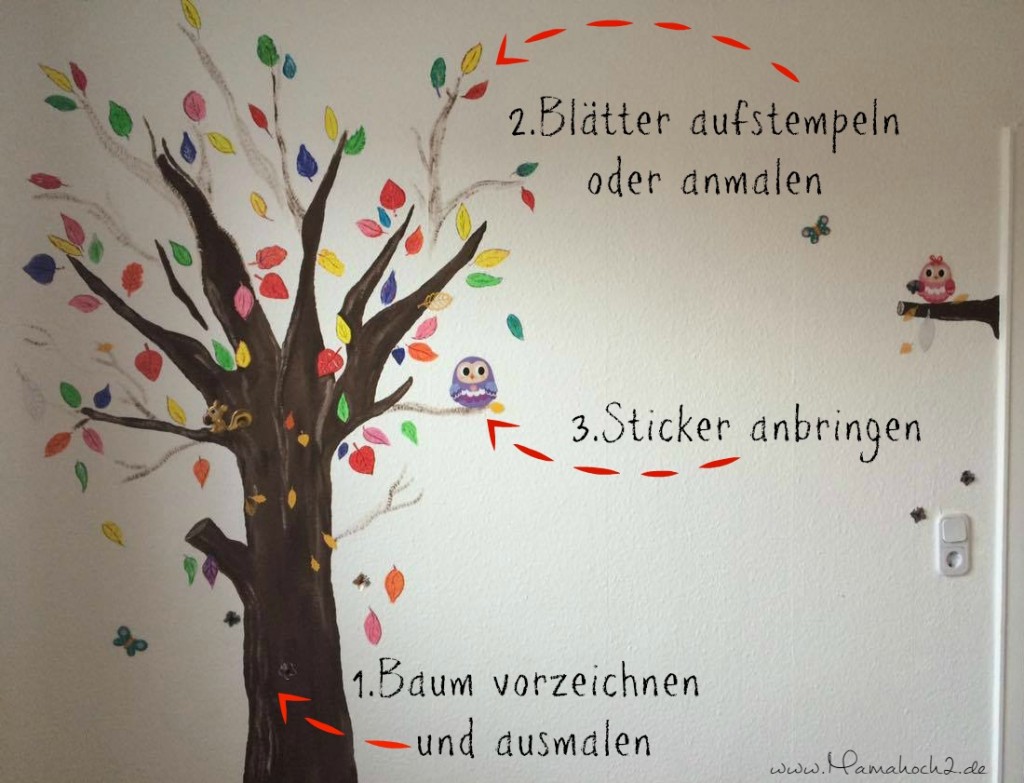 2.Blätter aufstempeln
oder anmalen
3.Sticker anbringen
1.Baum vorzeichnen
und ausmalen
www.Mamahoch2.de